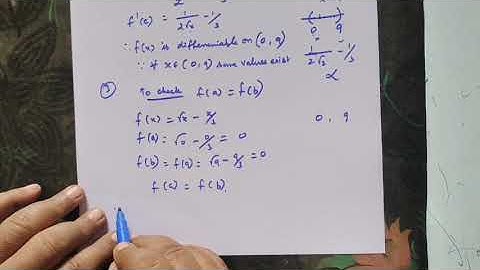 f'(c) = 1/2√x - 1/3
0 9
∴ f(x) is differentiable on (0, 9)
∵ if x∈(0, 9) some values exist
1/2√x - 1/3
③ To check f(a) = f(b)
f(x) = √x - x/3
0, 9
f(a) = √0 - 0/3 = 0
f(b) = f(9) = √9 - 9/3 = 0
f(a) = f(b).